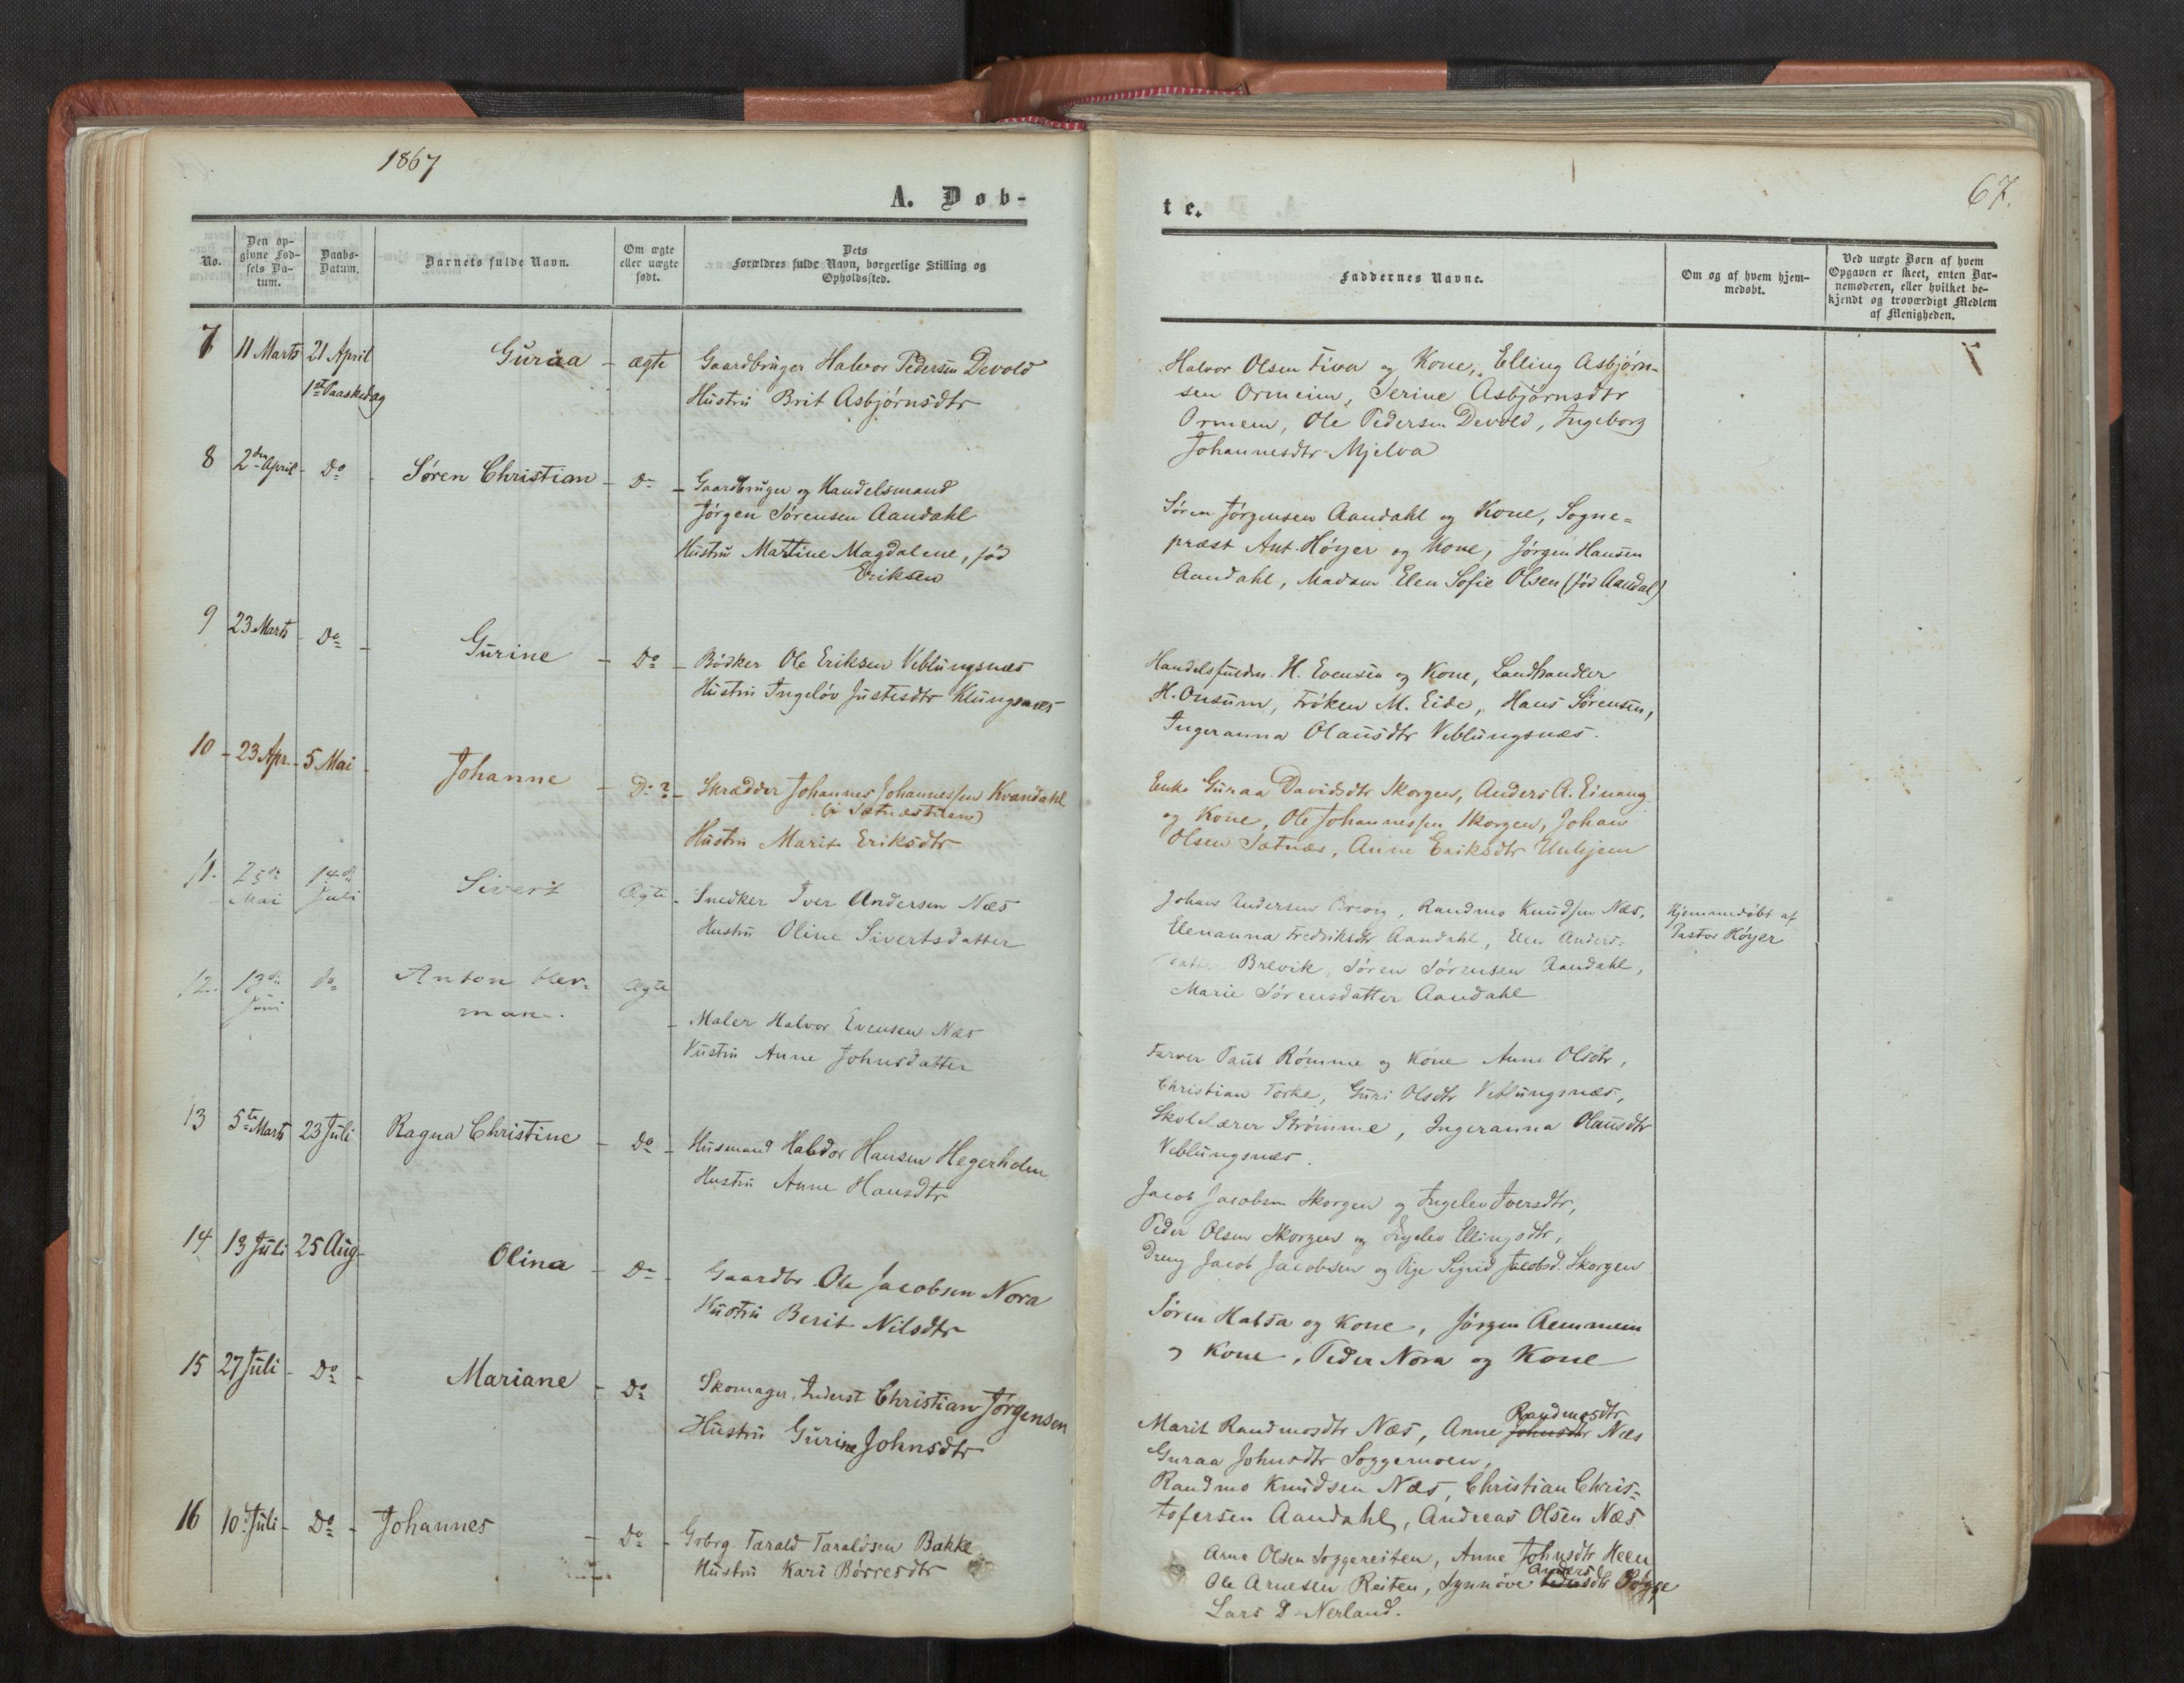 1867
A. Døb-
No.
Den op-
givne Fød-
sels Da-
tum.
Daabs-
Datum.
Barnets fulde Navn.
Om ægte
eller uægte
født.
Dets
Forældres fulde Navn, borgerlige Stilling og
Opholdssted.
7 11 Marts 21 April Guraa - ægte Gaardbruger Halvor Pedersen Devold
1ste Paaskedag Hustru Brit Asbjørnsdtr
8 2den April - Do - Søren Christian - Do - Gaardbruger og Handelsmand
Jørgen Sørensen Aandahl
Hustru Martine Magdalene, fød
Eriksen
9 23 Marts - Do - Gurine - Do - Bødker Ole Eriksen Veblungsnæs
Hustru Ingeløv Justesdtr Klungsnæs
10 - 23 Apr. - 5 Mai - Johanne - Do ? - Skrædder Johannes Johannessen Kvandahl
(i Sætnæstuen)
Hustru Marit Eriksdtr
11. 25de Mai 14de Juli Sivert Ægte - Snedker Iver Andersen Næs
Hustru Oline Sivertsdatter
12. 13de Juni Do Anton Her-
man. Ægte
- Maler Halvor Evensen Næs
Hustru Anne Johnsdatter
13 5te Marts 23 Juli Ragna Christine - Do - Husmand Haldor Hansen Hegerholm
Hustru Anne Hansdtr
14 13 Juli 25 Aug - Olina - Do - Gaardbr. Ole Jacobsen Nora
Hustru Berit Nilsdtr
15 27 Juli - Do - Mariane - Do Skomager, Inderst Christian Jørgensen
Hustru Gurine Johnsdtr
16 10 Juli - Do - Johannes - Do - Grbrg. Tarald Taraldsen Bakke
Hustru Kari Børresdtr
67.
te.
Faddernes Navne.
Om og af hvem hjem-
medøbt.
Ved uægte Børn af hvem
Opgaven er skeet, enten Bar-
nemoderen, eller hvilket be-
kjendt og troværdigt Medlem
af Menigheden.
Halvor Olsen Fiva og Kone, Elling Asbjørn-
sen Ormeim, Serine Asbjørnsdtr
Ormeim, Ole Pedersen Devold, Ingeborg
Johannesdtr Mjelva
Søren Jørgensen Aandahl og Kone, Sogne-
præst Ant. Høyer og Kone, Jørgen Hansen
Aandahl, Madam Elen Sofie Olsen (fød Aandal)
H. Evensen og Kone, Landhandler
H. Onsum, Frøken M. Eide, Hans Sørensen,
Ingeranna Olausdtr Veblungsnæs.
Enke Guraa Davidsdtr Skorgen, Anders A. Einang
og Kone, Ole Johannessen Skorgen, Johan
Olsen Sætnæs, Anne Eriksdtr Unhjem
Johan Andersen Brevig, Randmo Knudsen Næs,
Elenanna Fredriksdtr Aandahl, Elen Anders-
datter Brevik, Søren Sørensen Aandahl,
Marie Sørensdatter Aandahl
Hjemmedøbt af
Pastor Høyer
Farver Paul Rømme og Kone Anne Olsdtr,
Christian Torke, Guri Olsdtr Veblungsnæs,
Skolelærer Strømme, Ingeranna Olausdtr
Veblungsnæs.
Jacob Jacobsen Skorgen og Ingelev Iversdtr,
Peder Olsen Skorgen og Ingelev Ellingsdtr,
Dreng Jacob Jacobsen og Pige Sigrid Jacobsd. Skorgen
Søren Halsa og Kone, Jørgen Aemmem
og Kone, Peder Nora og Kone
Randmosdtr
Marit Randmosdtr Næs, Anne Johnsdtr Næs
Guraa Johnsdtr Soggemoen,
Randmo Knudsen Næs, Christian Chris-
tofersen Aandahl, Andreas Olsen Næs
Arne Olsen Soggereiten, Anne Johnsdtr Heen
Anders
Ole Arnesen Reiten, Synnøve Sogge
Lars D. Nerland.